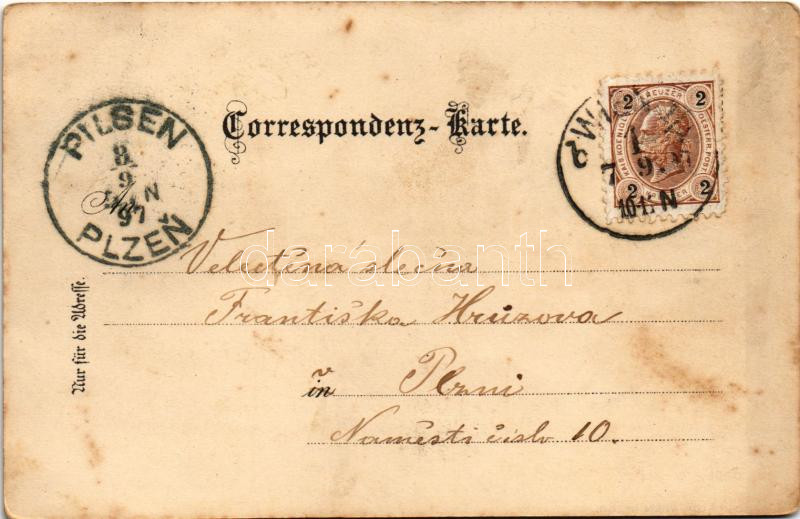 Correspondenz-Karte.
PILSEN
8
9
97
PLZEŇ
An
WIEN
1
7 9 97
10-11 N
2 KREUZER 2
KAIS. KOENIGL. OESTERR. POST.
2 KREUZER 2
Veletěná slečna
Františka Hrůzova
v
in Plzni
Náměstí číslo 10.
Nur für die Adresse.
darabanth